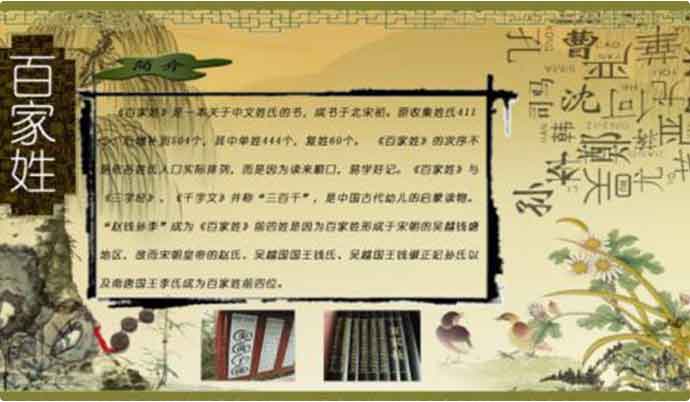 百家姓
简介
《百家姓》是一本关于中文姓氏的书，成书于北宋初。原收集姓氏411
个，后增补到504个，其中单姓444个，复姓60个。 《百家姓》的次序不
是依各姓氏人口实际排列，而是因为读来顺口，易学好记。《百家姓》与
《三字经》、《千字文》并称“三百千”，是中国古代幼儿的启蒙读物。
“赵钱孙李”成为《百家姓》前四姓是因为百家姓形成于宋朝的吴越钱塘
地区，故而宋朝皇帝的赵氏、吴越国国王钱氏、吴越国王钱俶正妃孙氏以
及南唐国王李氏成为百家姓前四位。
孔
曹
司马
沈
韩
郑
尤
孙